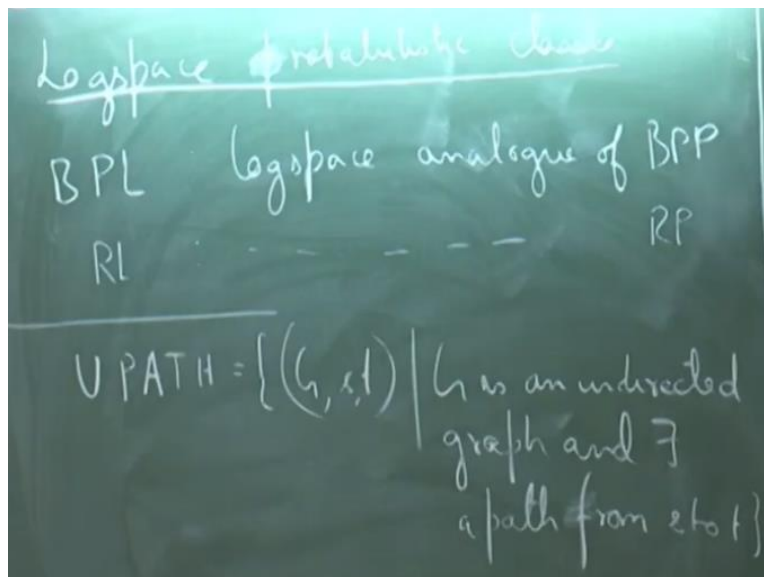 Logspace probabilistic classes
BPL logspace analogue of BPP
RL - - - - - - RP
UPATH = {(G, s, t) | G is an undirected
graph and ∃
a path from s to t}